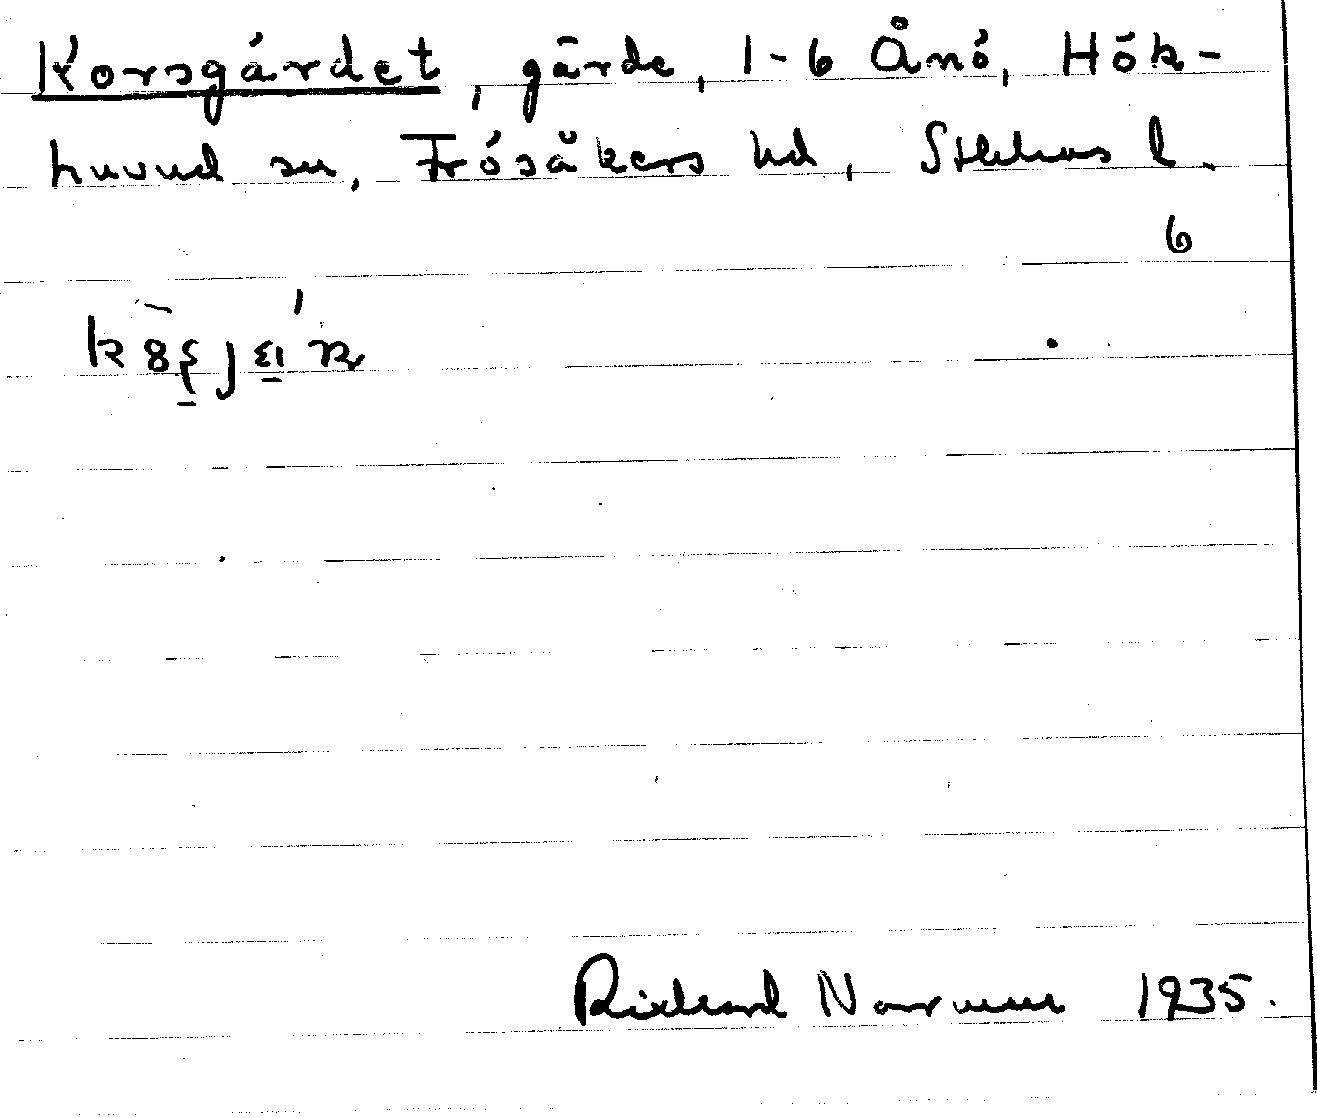 Korsgärdet, gärde, 1-6 Ånö, Hök-
huvud sn, Frösåkers hd, Sthlms l.
6
Richard Norrman 1935.